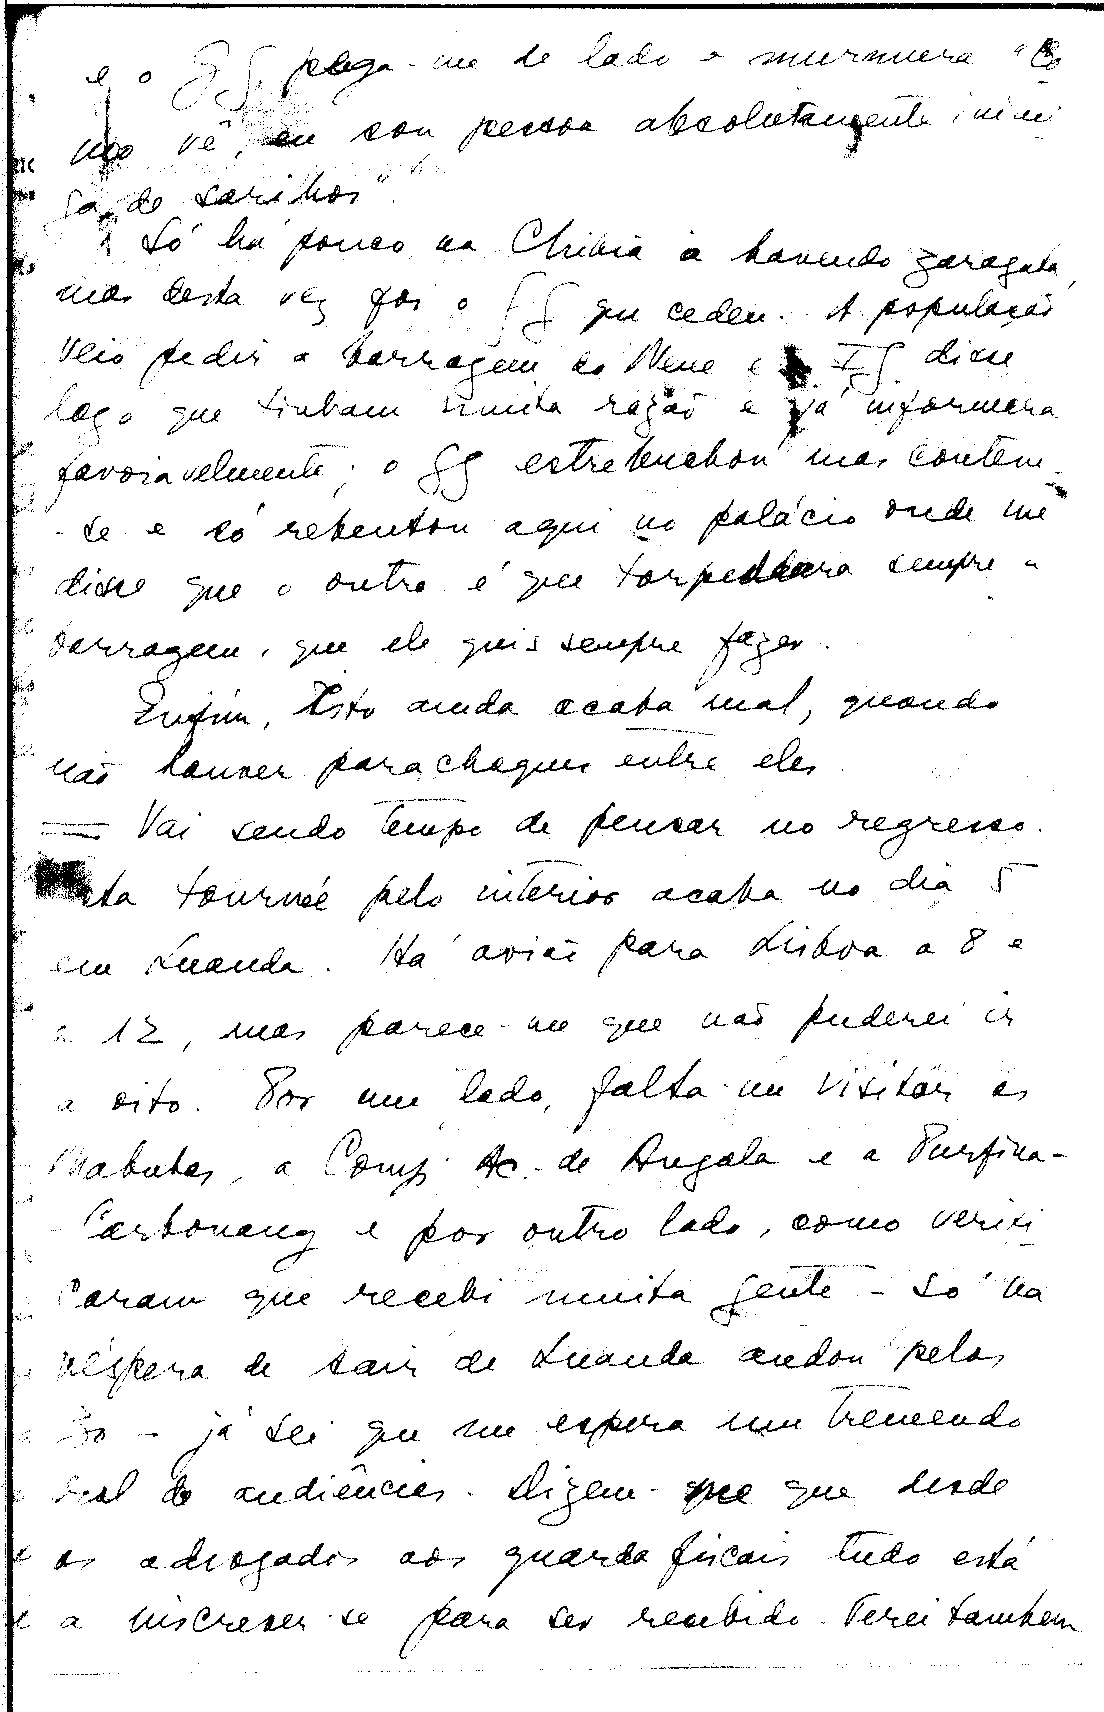 e o GG. pega-me de lado e murmura "Co
mo vê, eu sou pessoa absolutamente inimi
ga de sarilhos".
Só há pouco na Chibia ia havendo zaragata,
mas desta vez foi o GG que cedeu. A população
veio pedir a barragem do Nene e o IG. disse
logo que tinham muita razão e já informara
favoravelmente; o GG estrebuchou mas conteve-
-se e só rebentou aqui no palácio onde me
disse que o outro é que torpedeara sempre a
barragem, que ele quis sempre fazer.
Enfim, isto ainda acaba mal, quando
não houver parachoques entre eles.
= Vai sendo tempo de pensar no regresso.
Esta tournée pelo interior acaba no dia 5
em Luanda. Há avião para Lisboa a 8 e
a 12, mas parece-me que não puderei ir
a oito. Por um lado, falta-me visitar as
Mabubas, a Comp. Aç. de Angola e a Purfina-
Carbonang e por outro lado, como verifi
caram que recebi muita gente - só na
véspera de sair de Luanda andou pelos
30 - já sei que me espera um tremendo
de audiências. Dizem-me que desde
os advogados aos guarda fiscais tudo está
a inscrever-se para ser recebido. Terei tambem